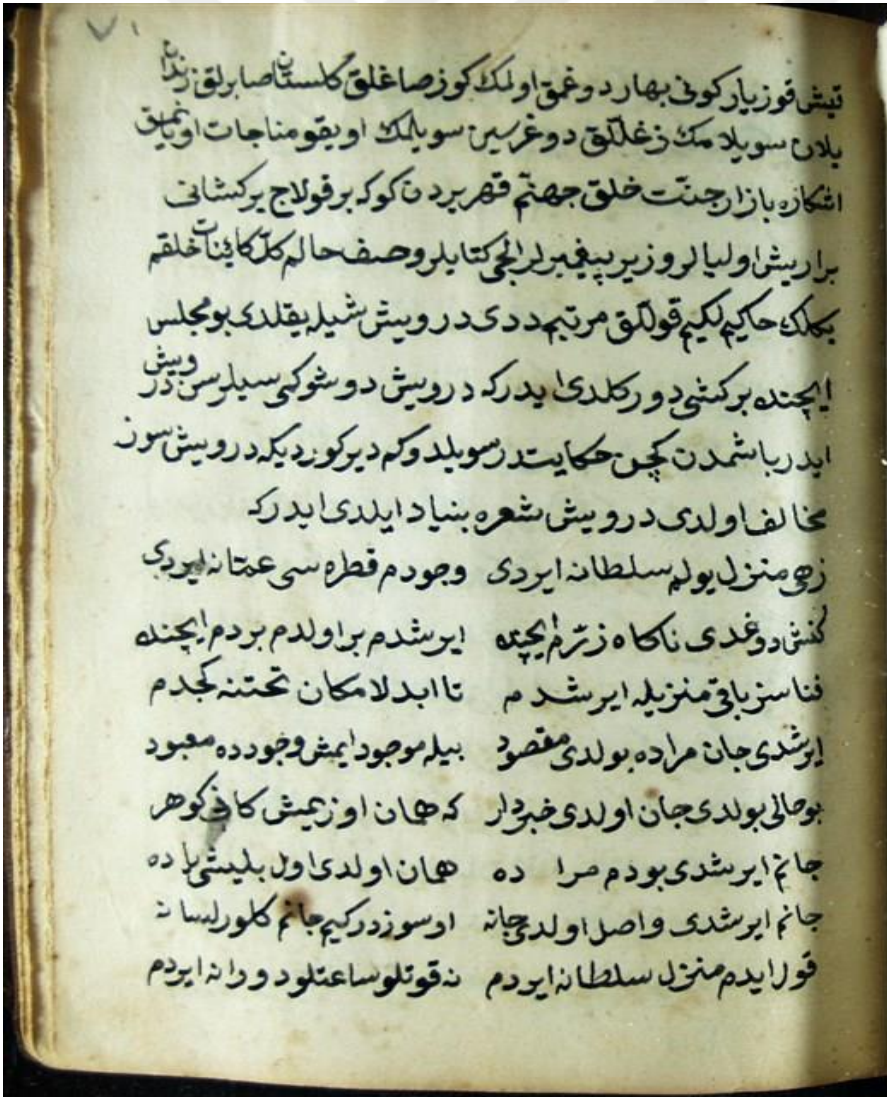 ۷۱
قیش قوز یار کونی بهار دوغمق اولمك كوز صاغلق گلستان صابرلق زندان
یلان سویلامك زغللق دوغرسین سویلمك اویقو مناجات اویانمق
اشكاره بازار جنت خلق جهنم قهر یردن كوكه بر قولاج یر كشانی
برار یش اولیالر وزیر پیغمبرلر الجی كتابلر وصف حالم كل كائینات خلقم
یكلك حاكیم لكیم قوللق مرتبم ددی درویش شیله یقلدی بو مجلس
ایچنده بر كشی دور كلدی ایدر كه درویش دوشو كمی سیلرسن درویش
ایدر باشمدن كچن حكایت در سویلدوكم دیر كوردیكه درویش سوز
مخالف اولدی درویش شعره بنیاد ایلدی ایدر كه
زهی منزل یولم سلطانه ایردی وجودم قطره سی عمانه ایردی
كنش دوغدی ناكاه زرّم ایچنده ایرشدم بر اولدم بردم ایچنده
فناسز باقی منزیله ایرشدم تا ابد لامكان تختنه كجدم
ایرشدی جان مراده بولدی مقصود بیله موجود ایمش وجودده معبود
بو حالی بولدی جان اولدی خبردار كه همان اوزیمش كان كوهر
جانم ایرشدی بودم مراده همان اولدی اول بلیشی یاده
جانم ایرشدی واصل اولدی جانه او سوزدر كیم جانم كلور لسانه
قول ایدم منزل سلطانه ایردم نه قوتلو ساعتلو دورانه ایردم